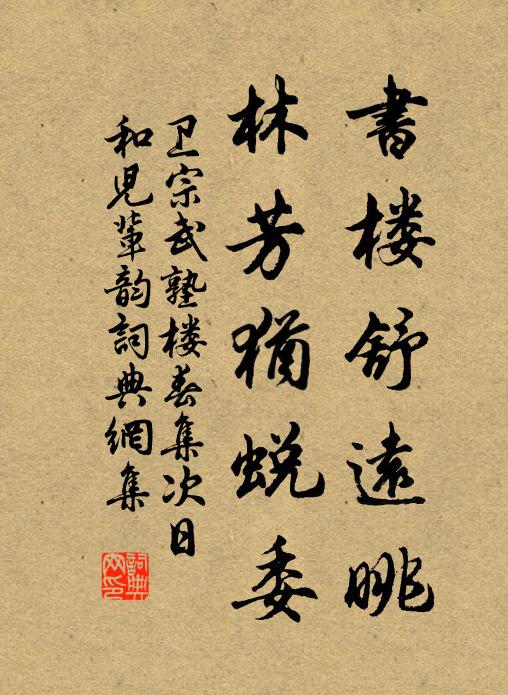 書楼舒遠眺
林芳猶蜕委
卫宗武塾楼春集次日
和児輩韵詞典網集
詞典网印